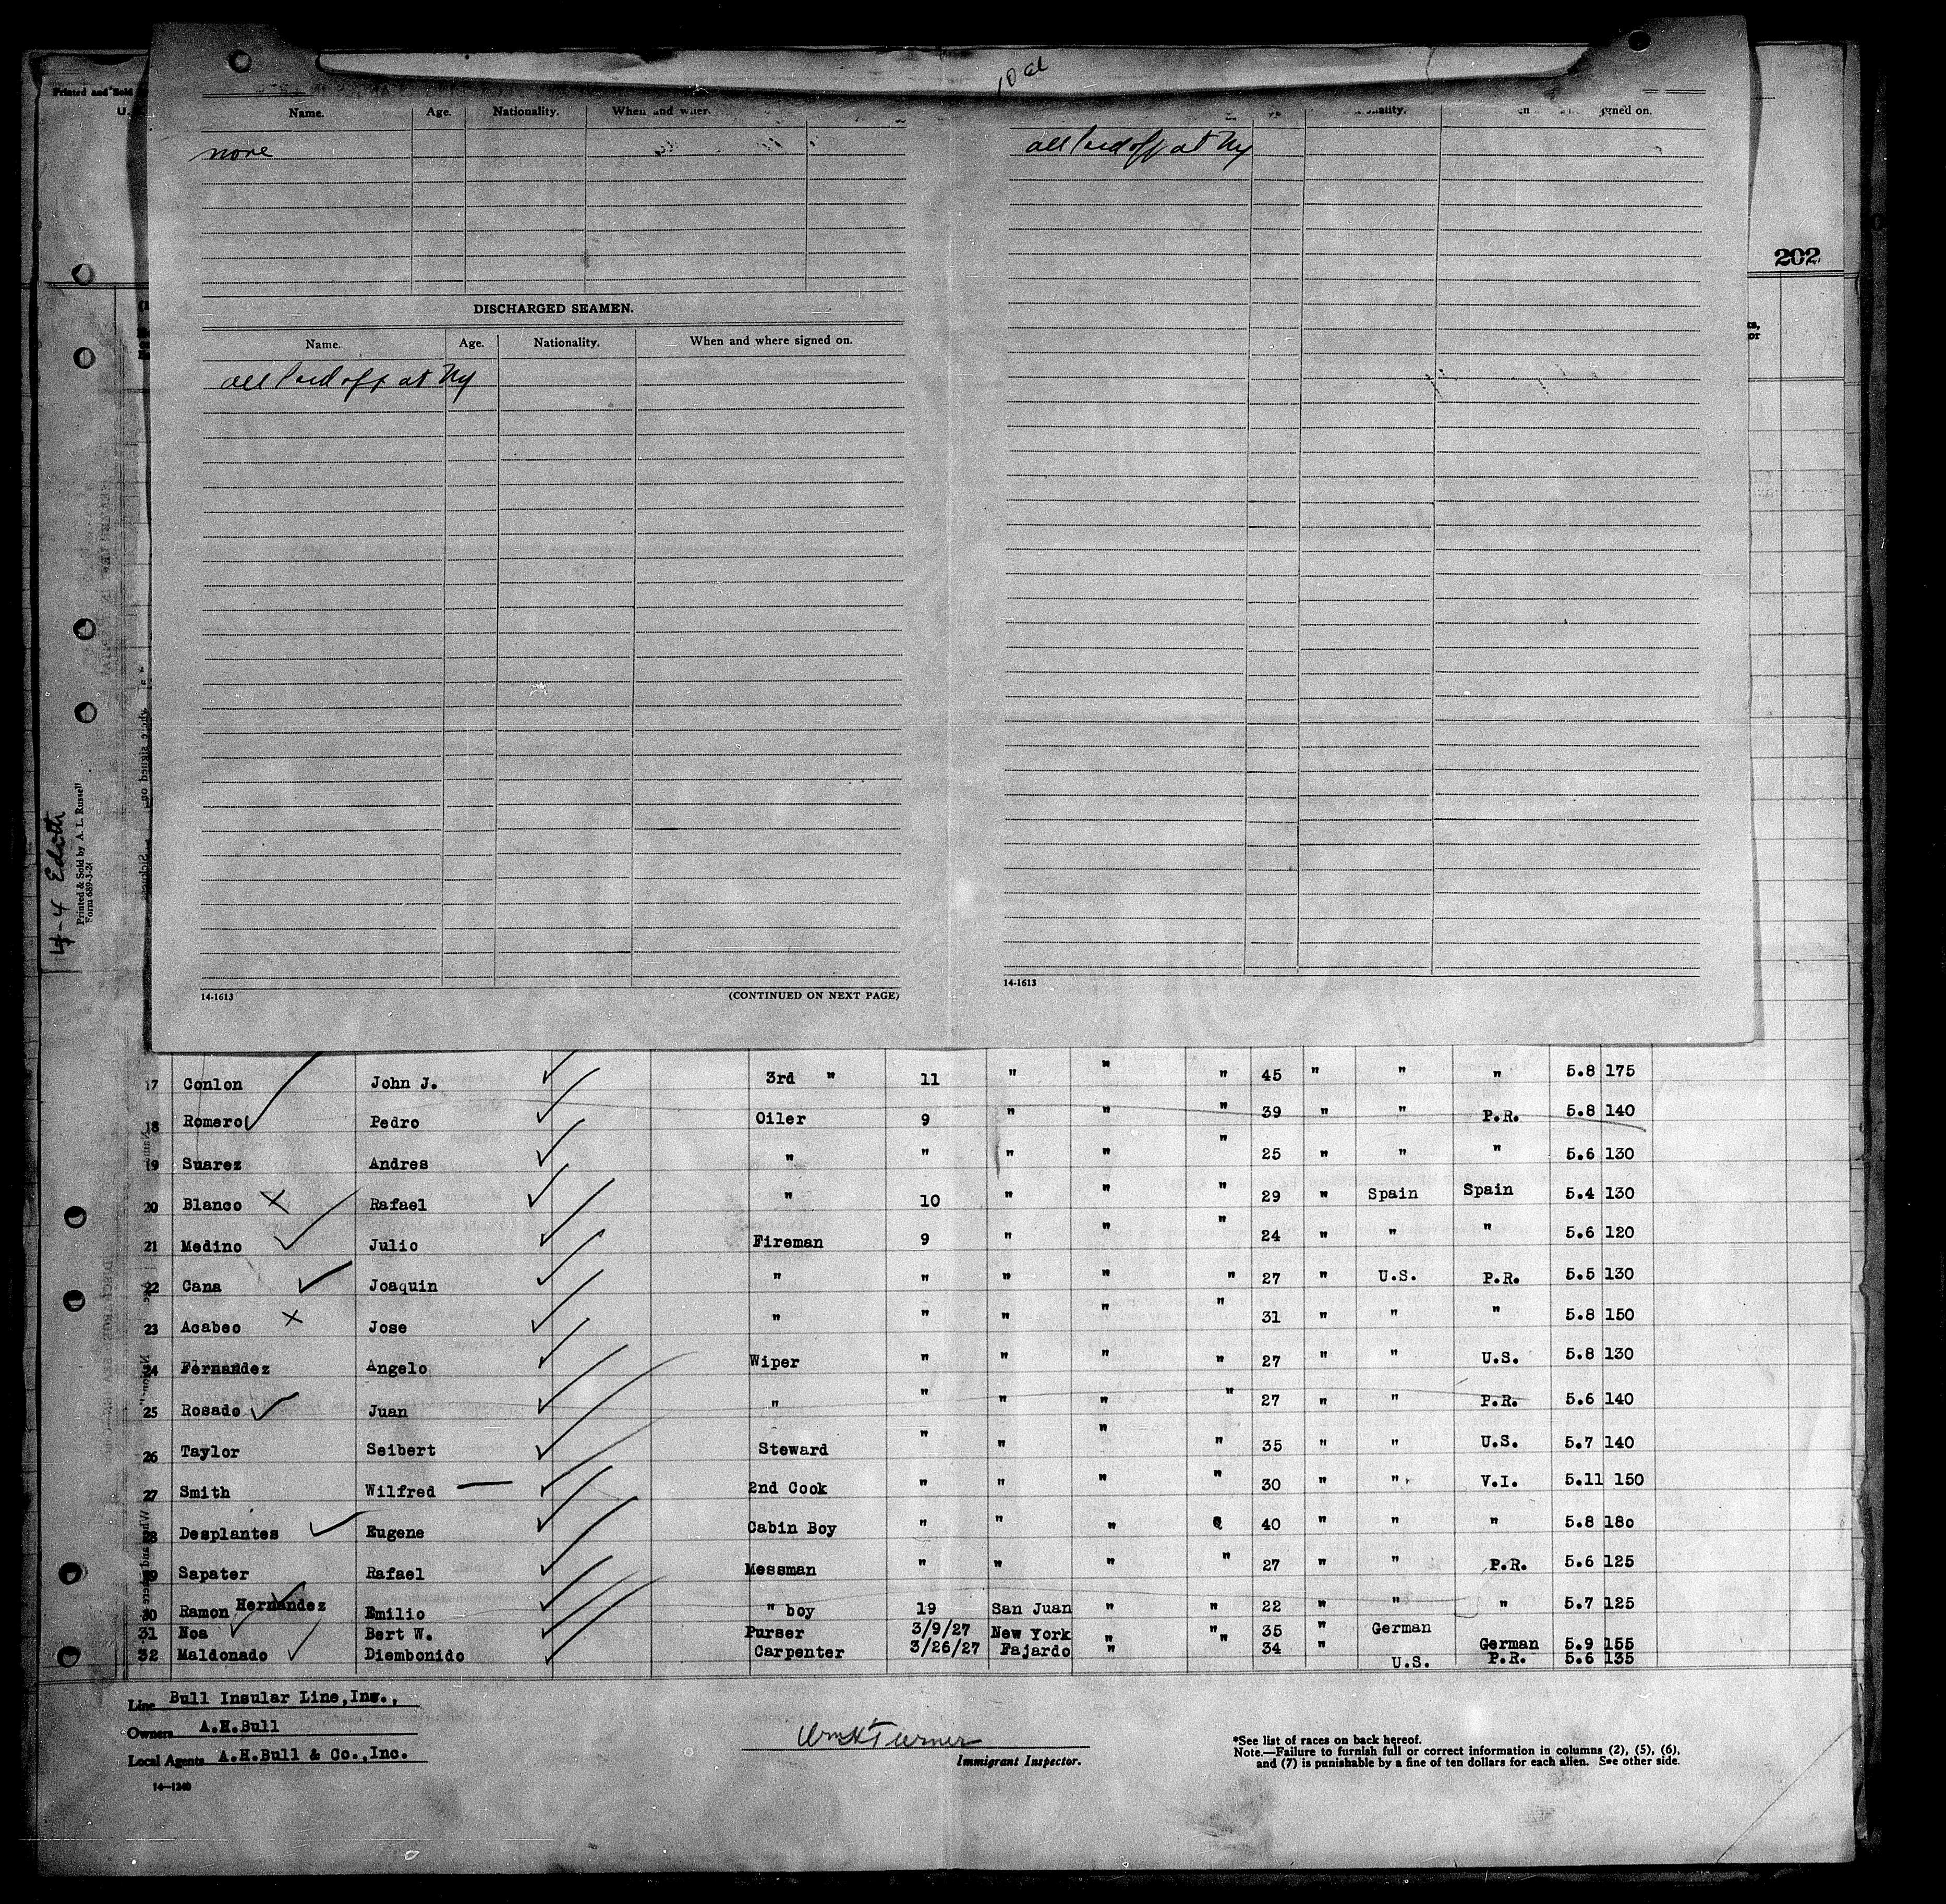 Printed and Sold
U.
10 al
Name. Age. Nationality. When and wher
none
DISCHARGED SEAMEN.
Name. Age. Nationality. When and where signed on.
all Paid off at Ny
14-1613 (CONTINUED ON NEXT PAGE)
signed on.
all Paid off at Ny
14-1613
202
4-4 Edith
Printed & Sold by A. L. Russell
Form 689-3-24
17 Conlon John J. 3rd " 11 " " " 45 " " " 5.8 175
18 Romero Pedro Oiler 9 " " " 39 " " P.R. 5.8 140
19 Suarez Andres " " " " " 25 " " " 5.6 130
20 Blanco x Rafael " 10 " " " 29 " Spain Spain 5.4 130
21 Medino Julio Fireman 9 " " " 24 " " " 5.6 120
22 Cana Joaquin " " " " " 27 " U.S. P.R. 5.5 130
23 Acabeo x Jose " " " " " 31 " " " 5.8 150
24 Fernandez Angelo Wiper " " " " 27 " " U.S. 5.8 130
25 Rosado Juan " " " " " 27 " " P.R. 5.6 140
26 Taylor Seibert Steward " " " " 35 " " U.S. 5.7 140
27 Smith Wilfred — 2nd Cook " " " " 30 " " V.I. 5.11 150
28 Desplantes Eugene Cabin Boy " " " 40 " " " 5.8 180
29 Sapater Rafael Messman " " " " 27 " " P.R. 5.6 125
30 Ramon Hernandez Emilio " boy 19 San Juan " " 22 " " " 5.7 125
31 Noa Bert W. Purser 3/9/27 New York " " 35 " German German 5.9 155
32 Maldonado Diembonido Carpenter 3/26/27 Fajardo " " 34 " U.S. P.R. 5.6 135
Line Bull Insular Line,Inc.,
Owners A.H.Bull
Local Agents A.H.Bull & Co.,Inc.
14—1240
Wm H Turner
Immigrant Inspector.
*See list of races on back hereof.
Note.—Failure to furnish full or correct information in columns (2), (5), (6),
and (7) is punishable by a fine of ten dollars for each alien. See other side.